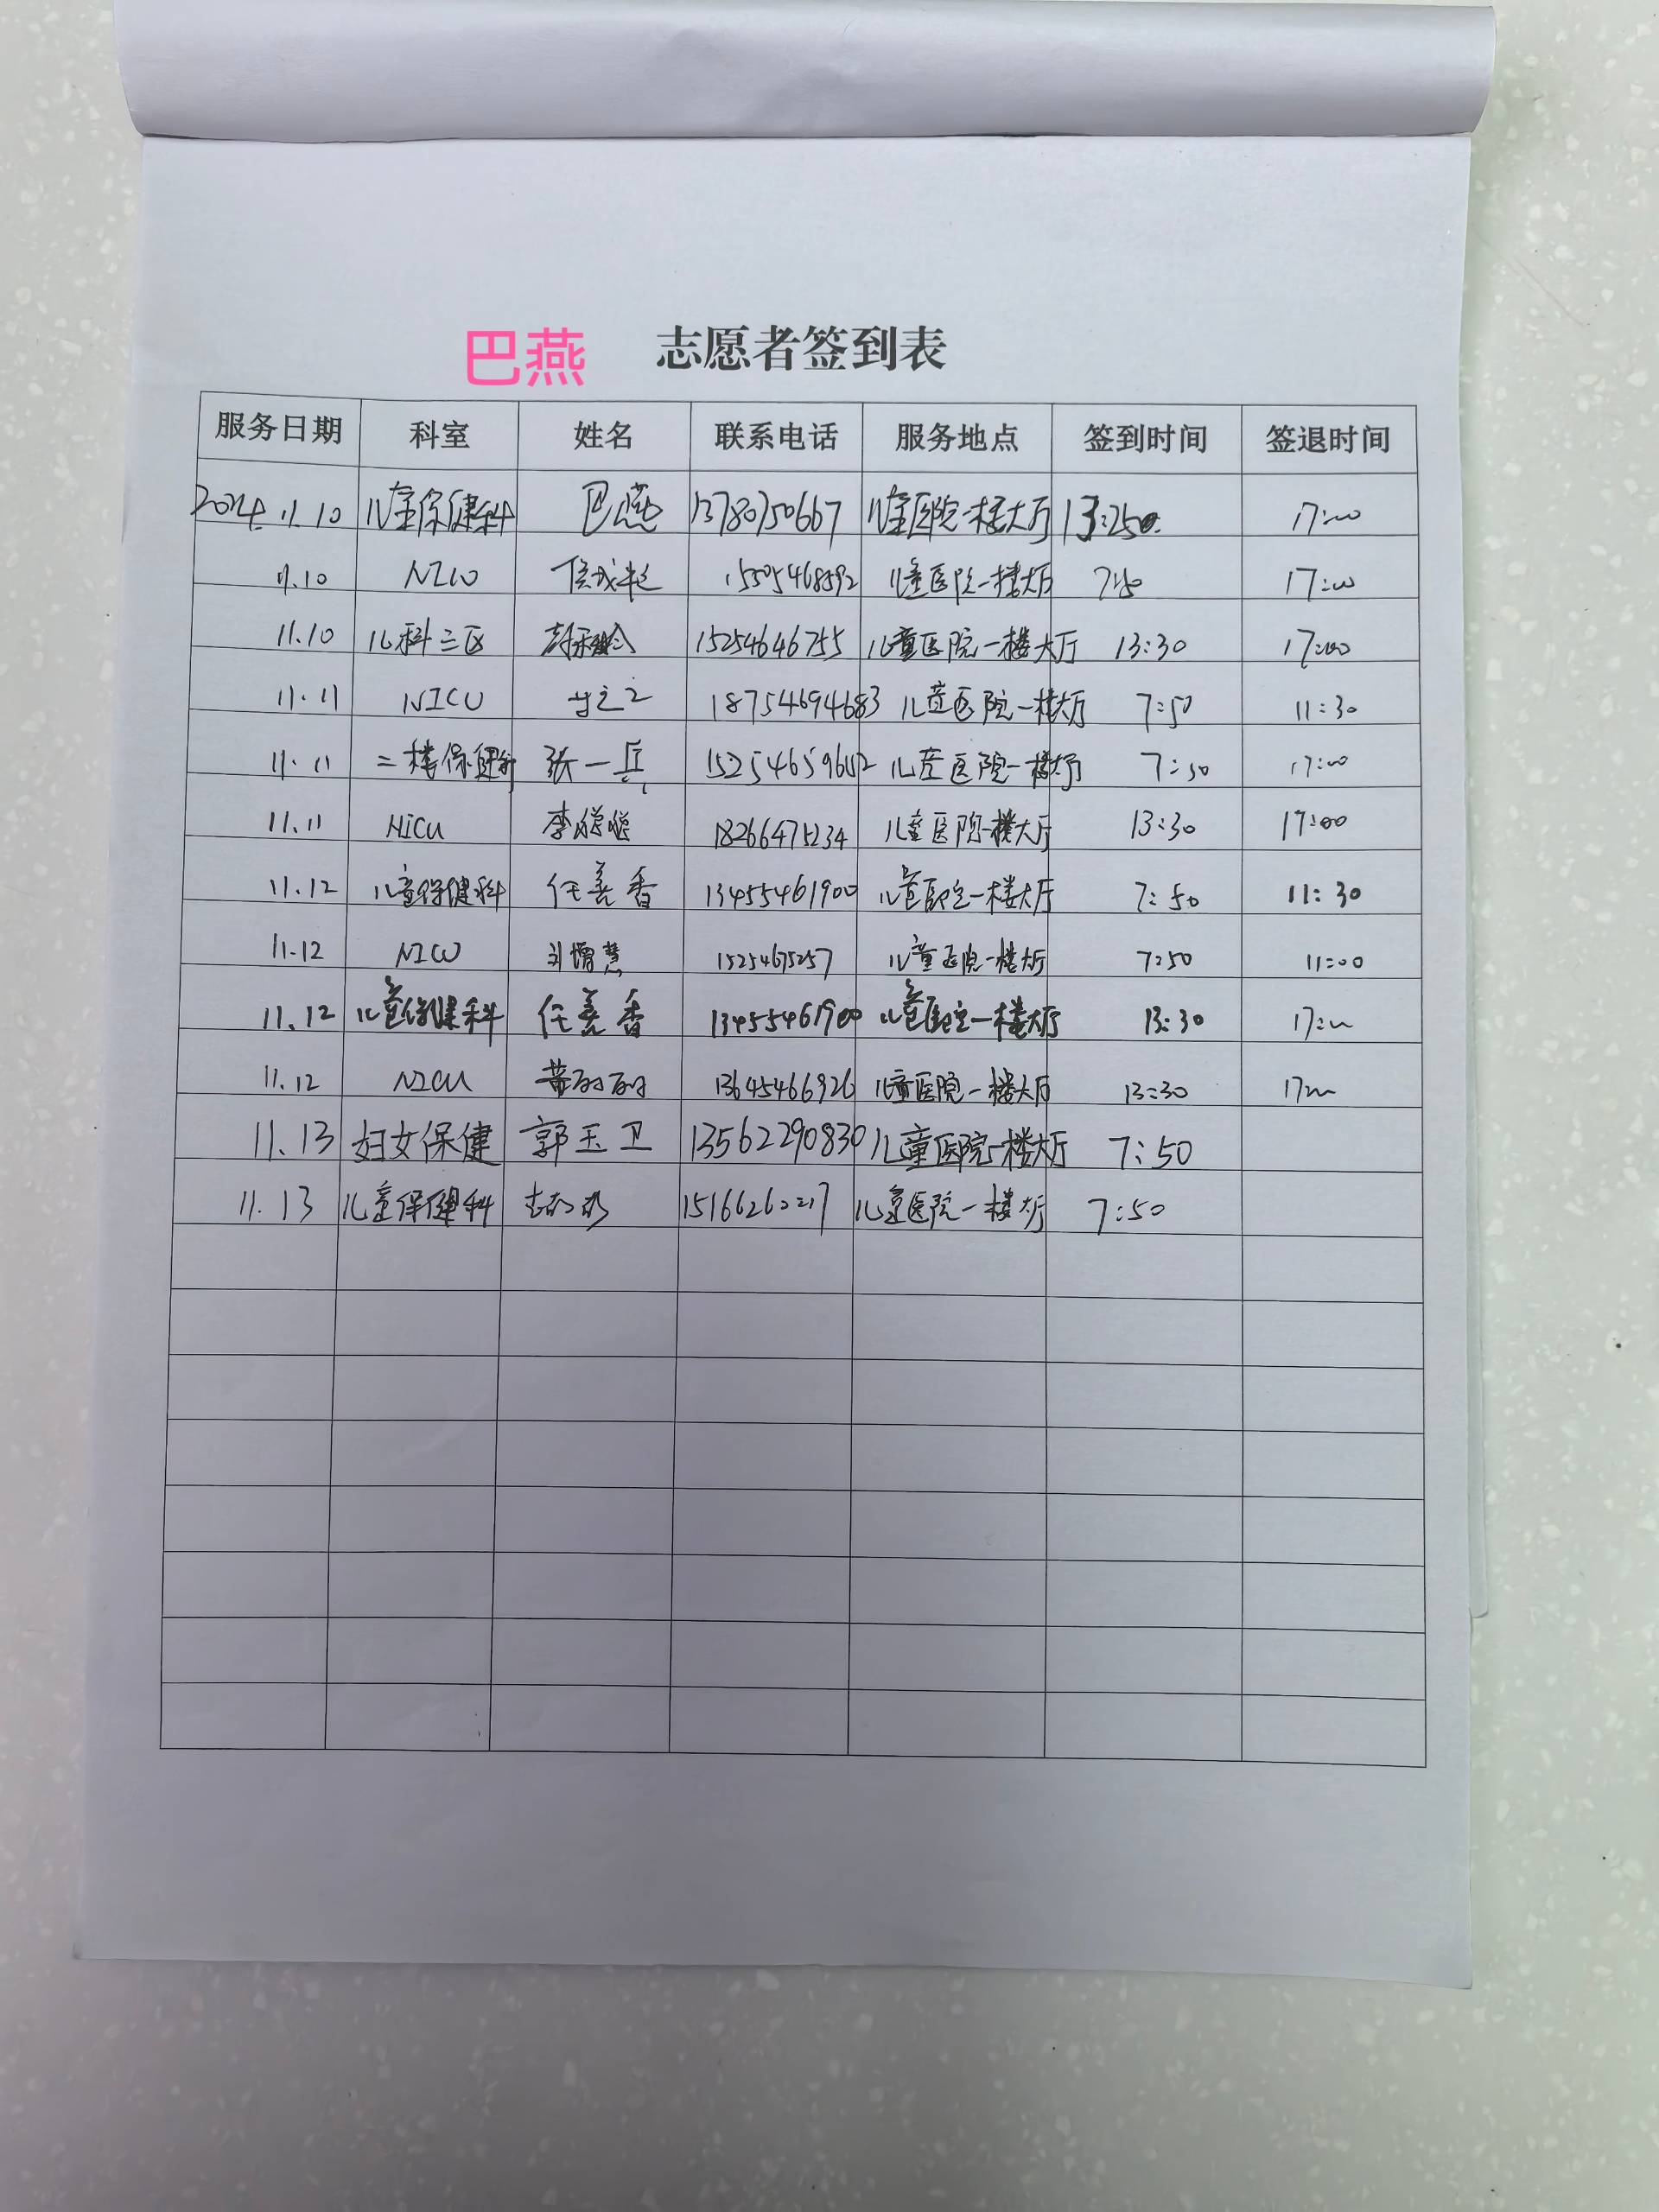 巴燕 志愿者签到表
服务日期 科室 姓名 联系电话 服务地点 签到时间 签退时间
2024.11.10 儿童保健科 巴燕 13780750667 儿童医院一楼大厅 17:00
11.10 NICU 15505468592 儿童医院一楼大厅 17:00
11.10 儿科三区 15254646755 儿童医院一楼大厅 13:30 17:00
11.11 NICU 18754694683 儿童医院一楼大厅 7:50 11:30
11.11 二楼保健科 张一兵 儿童医院一楼大厅 7:50 17:00
11.11 NICU 李聪聪 18266475234 儿童医院一楼大厅 13:30 17:00
11.12 儿童保健科 任善香 13455461900 儿童医院一楼大厅 7:50 11:30
11.12 NICU 15254675257 儿童医院一楼大厅 7:50 11:00
11.12 儿童保健科 任善香 13455461900 儿童医院一楼大厅 13:30 17:00
11.12 NICU 13645466926 儿童医院一楼大厅 13:30 17:00
11.13 妇女保健 郭玉卫 13562290830 儿童医院一楼大厅 7:50
11.13 儿童保健科 儿童医院一楼大厅 7:50